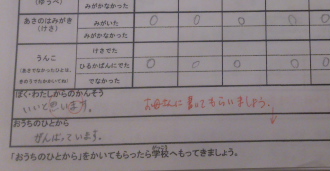 (ゆうべ) みがかなかった
あさのはみがき みがいた ○ ○ ○ ○ ○
(けさ) みがかなかった
けさでた
うんこ ひるかばんにでた ○ ○ ○ ○ ○
(あさでなかったひとは、
きのうでたかかいてね) でなかった
ぼく・わたしからのかんそう
いいと思います。
お母さんに 書いてもらいましょう。
おうちのひとから
がんばっています。
「おうちのひとから」をかいてもらったら学校へもってきましょう。